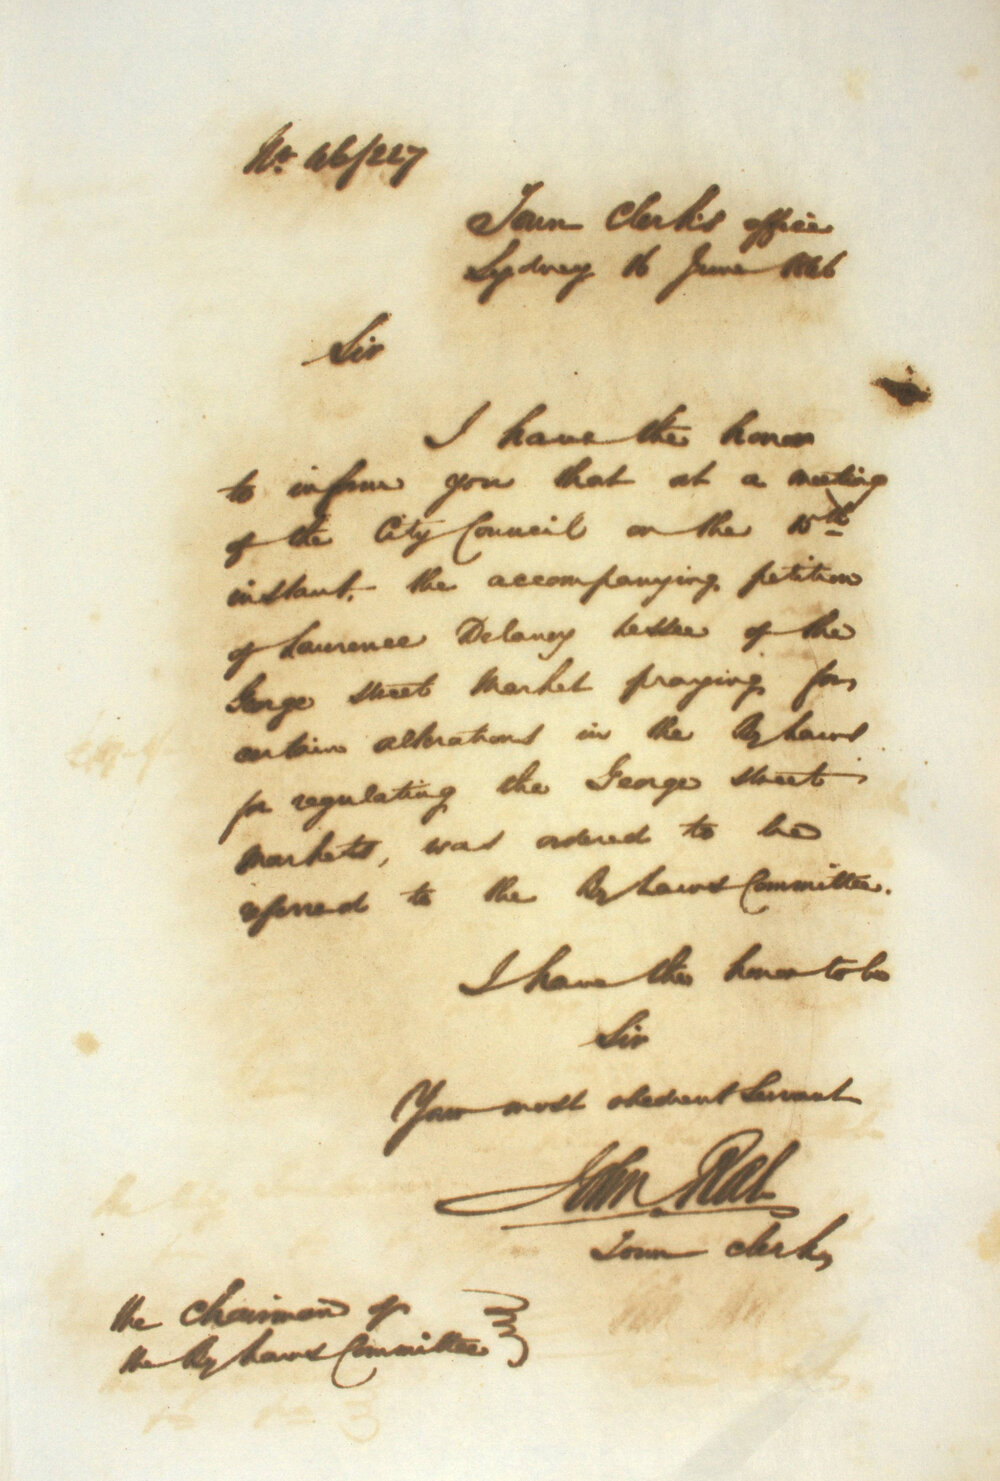 No. 46/227
Town Clerk's office
Sydney 16 June 1846
Sir
I have the honor
to inform you that at a meeting
of the City Council on the 15th
instant, the accompanying petition
of Laurence Delaney lessee of the
George Street Market praying for
certain alterations in the By Laws
for regulating the George Street
Markets, was ordered to be
referred to the By Laws Committee.
I have the honor to be
Sir
Your most obedient Servant
John Rae
Town Clerk
The Chairman of
the By Laws Committee